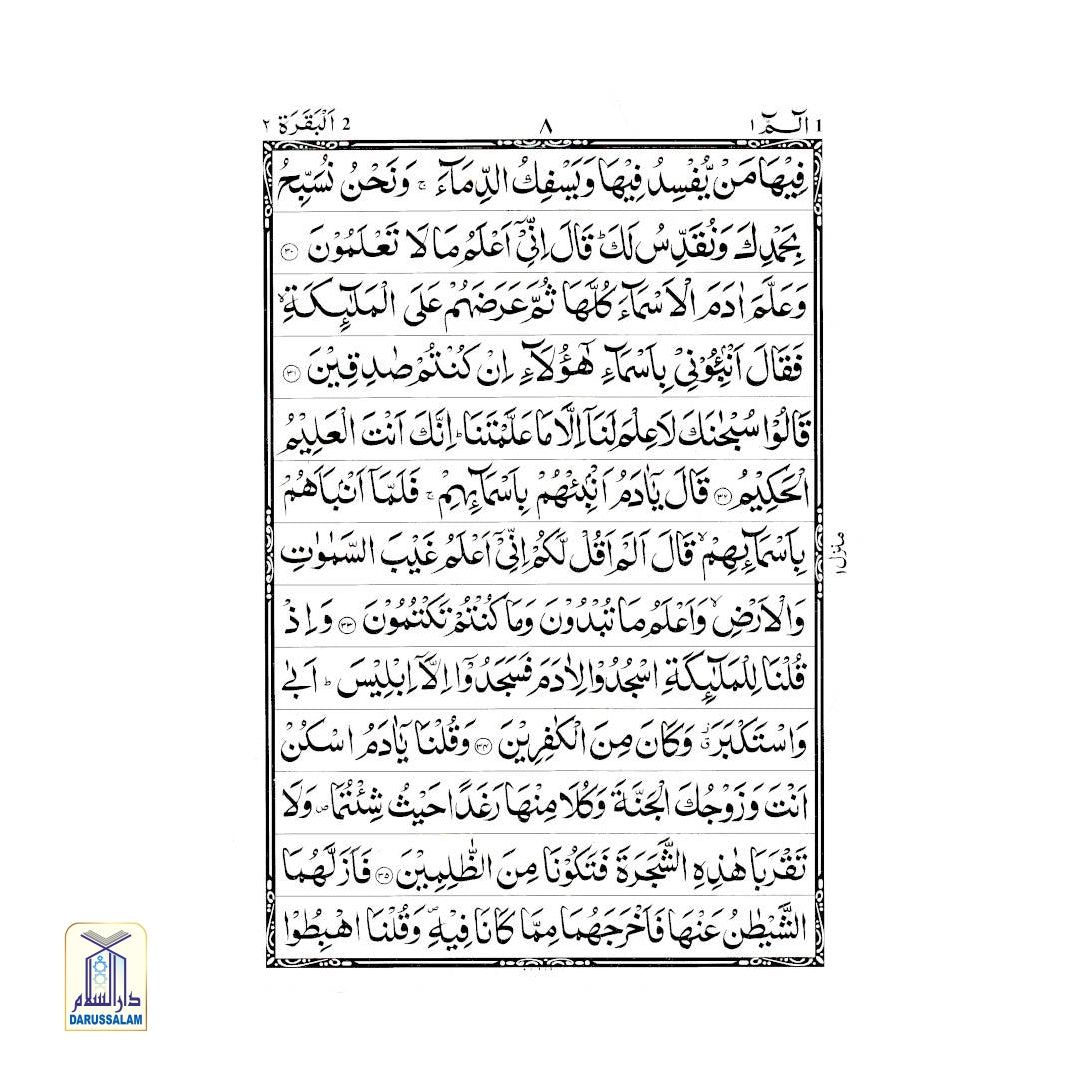 1 الٓمّٓ ١ ٨ 2 اَلْبَقَرَة ٢
فِيْهَا مَنْ يُّفْسِدُ فِيْهَا وَيَسْفِكُ الدِّمَآءَ ۚ وَنَحْنُ نُسَبِّحُ
بِحَمْدِكَ وَنُقَدِّسُ لَكَ ؕ قَالَ اِنِّىْٓ اَعْلَمُ مَا لَا تَعْلَمُوْنَ ۝٣٠
وَعَلَّمَ اٰدَمَ الْاَسْمَآءَ كُلَّهَا ثُمَّ عَرَضَهُمْ عَلَى الْمَلٰٓئِكَةِ ۙ
فَقَالَ اَنْۢبِـُٔوْنِىْ بِاَسْمَآءِ هٰٓؤُلَآءِ اِنْ كُنْتُمْ صٰدِقِيْنَ ۝٣١
قَالُوْا سُبْحٰنَكَ لَا عِلْمَ لَنَآ اِلَّا مَا عَلَّمْتَنَا ؕ اِنَّكَ اَنْتَ الْعَلِيْمُ
الْحَكِيْمُ ۝٣٢ قَالَ يٰٓاٰدَمُ اَنْۢبِئْهُمْ بِاَسْمَآئِهِمْ ۚ فَلَمَّآ اَنْۢبَاَهُمْ
بِاَسْمَآئِهِمْ ۙ قَالَ اَلَمْ اَقُلْ لَّكُمْ اِنِّىْٓ اَعْلَمُ غَيْبَ السَّمٰوٰتِ
وَالْاَرْضِ ۙ وَاَعْلَمُ مَا تُبْدُوْنَ وَمَا كُنْتُمْ تَكْتُمُوْنَ ۝٣٣ وَاِذْ
قُلْنَا لِلْمَلٰٓئِكَةِ اسْجُدُوْا لِاٰدَمَ فَسَجَدُوْٓا اِلَّآ اِبْلِيْسَ ؕ اَبٰى
وَاسْتَكْبَرَ ۗ وَكَانَ مِنَ الْكٰفِرِيْنَ ۝٣٤ وَقُلْنَا يٰٓاٰدَمُ اسْكُنْ
اَنْتَ وَزَوْجُكَ الْجَنَّةَ وَكُلَا مِنْهَا رَغَدًا حَيْثُ شِئْتُمَا ۪ وَلَا
تَقْرَبَا هٰذِهِ الشَّجَرَةَ فَتَكُوْنَا مِنَ الظّٰلِمِيْنَ ۝٣٥ فَاَزَلَّهُمَا
الشَّيْطٰنُ عَنْهَا فَاَخْرَجَهُمَا مِمَّا كَانَا فِيْهِ ۪ وَقُلْنَا اهْبِطُوْا
منزل ١
دار السلام
DARUSSALAM